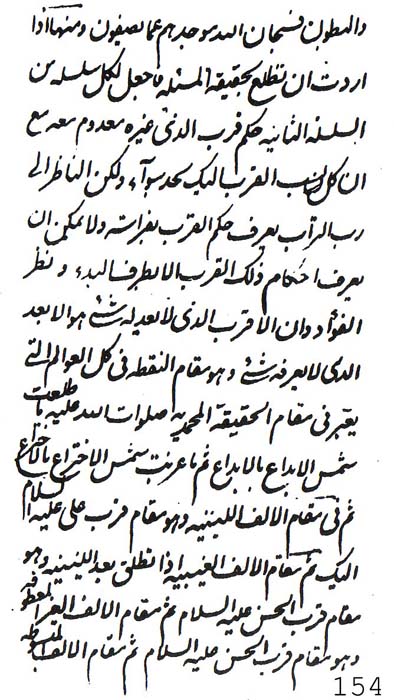 والبطون فسبحان الله موجدهم عما يصفون ومنها اذا
اردت ان تطلع بحقيقة المسئله فاجعل لكل سلسله من
السلسلة الثانيه حكم قرب الذى غيره معدوم معه مع
ان كل نسب القرب اليك بحد سوآء ولكن الناظر الى
رب الرتب يعرف حكم القرب بفراسته ولا يمكن ان
يعرف احكام ذلك القرب الا بطرف البدء ونظر
الفؤاد وان الاقرب الذى لا بعد له شئ هو الابعد
الذى لا يعرفه شئ وهو مقام النقطه فى كل العوالم التى
يعبر فى مقام الحقيقة المحمديه صلوات الله عليه ما طلعت
شمس الابداع بالابداع ثم ما غربت شمس الاختراع بالاختراع
ثم فى مقام الالف اللينيه وهو مقام قرب على عليه السلام
اليك ثم مقام الالف الغيبيه اذا تطلق بعد اللينيه وهو
مقام قرب الحسن عليه السلام ثم مقام الالف الغير المعطوفه
وهو مقام قرب الحسين عليه السلام ثم مقام الالف المبسوطه
154